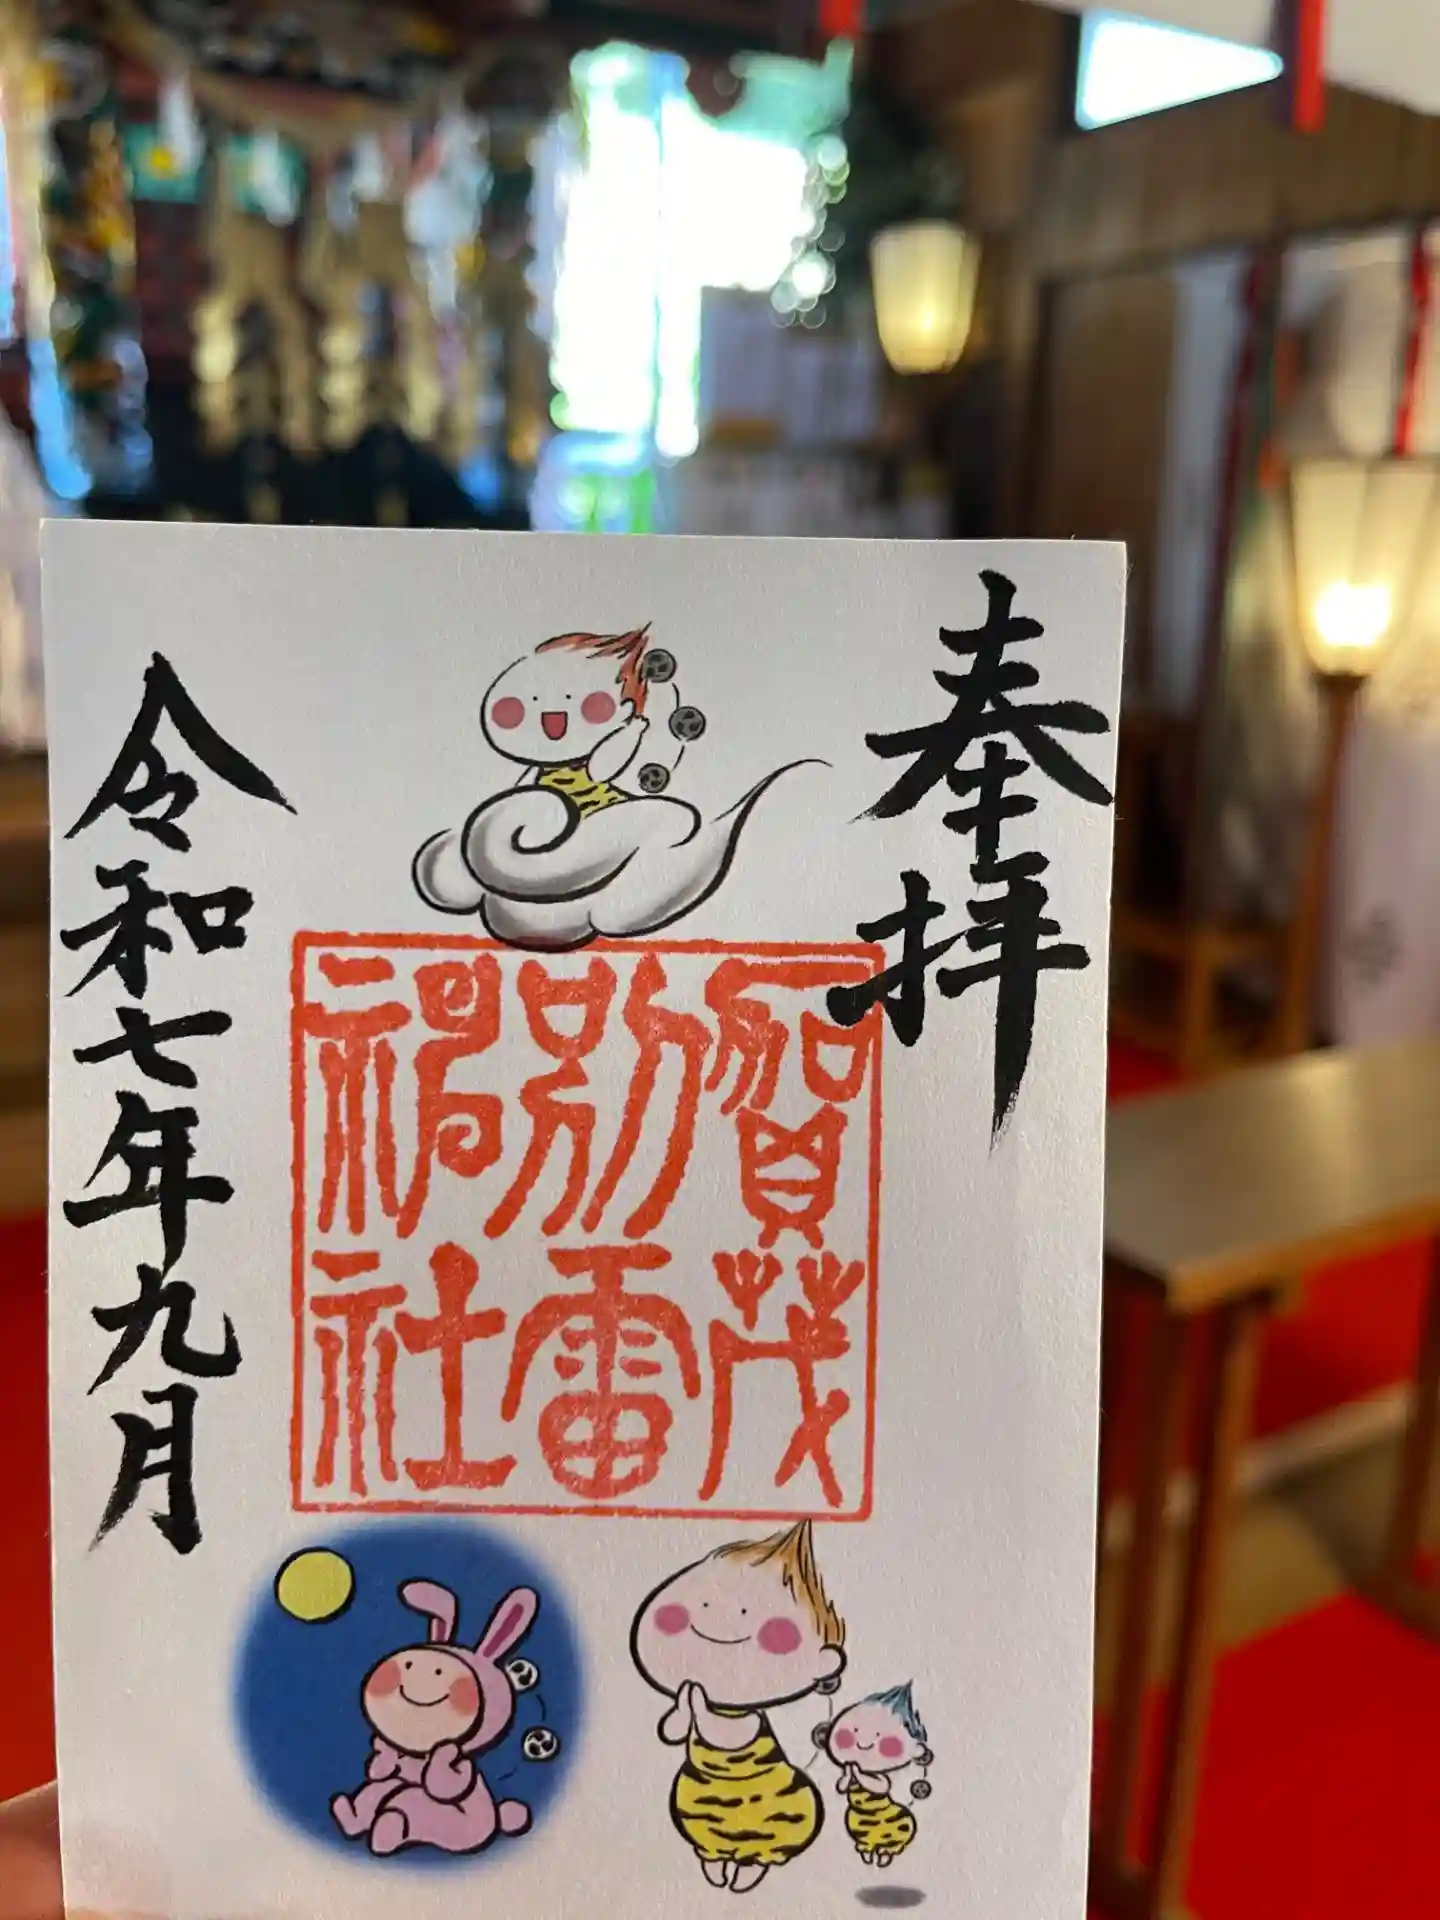 奉拝
賀茂
別雷
神社
令和七年九月